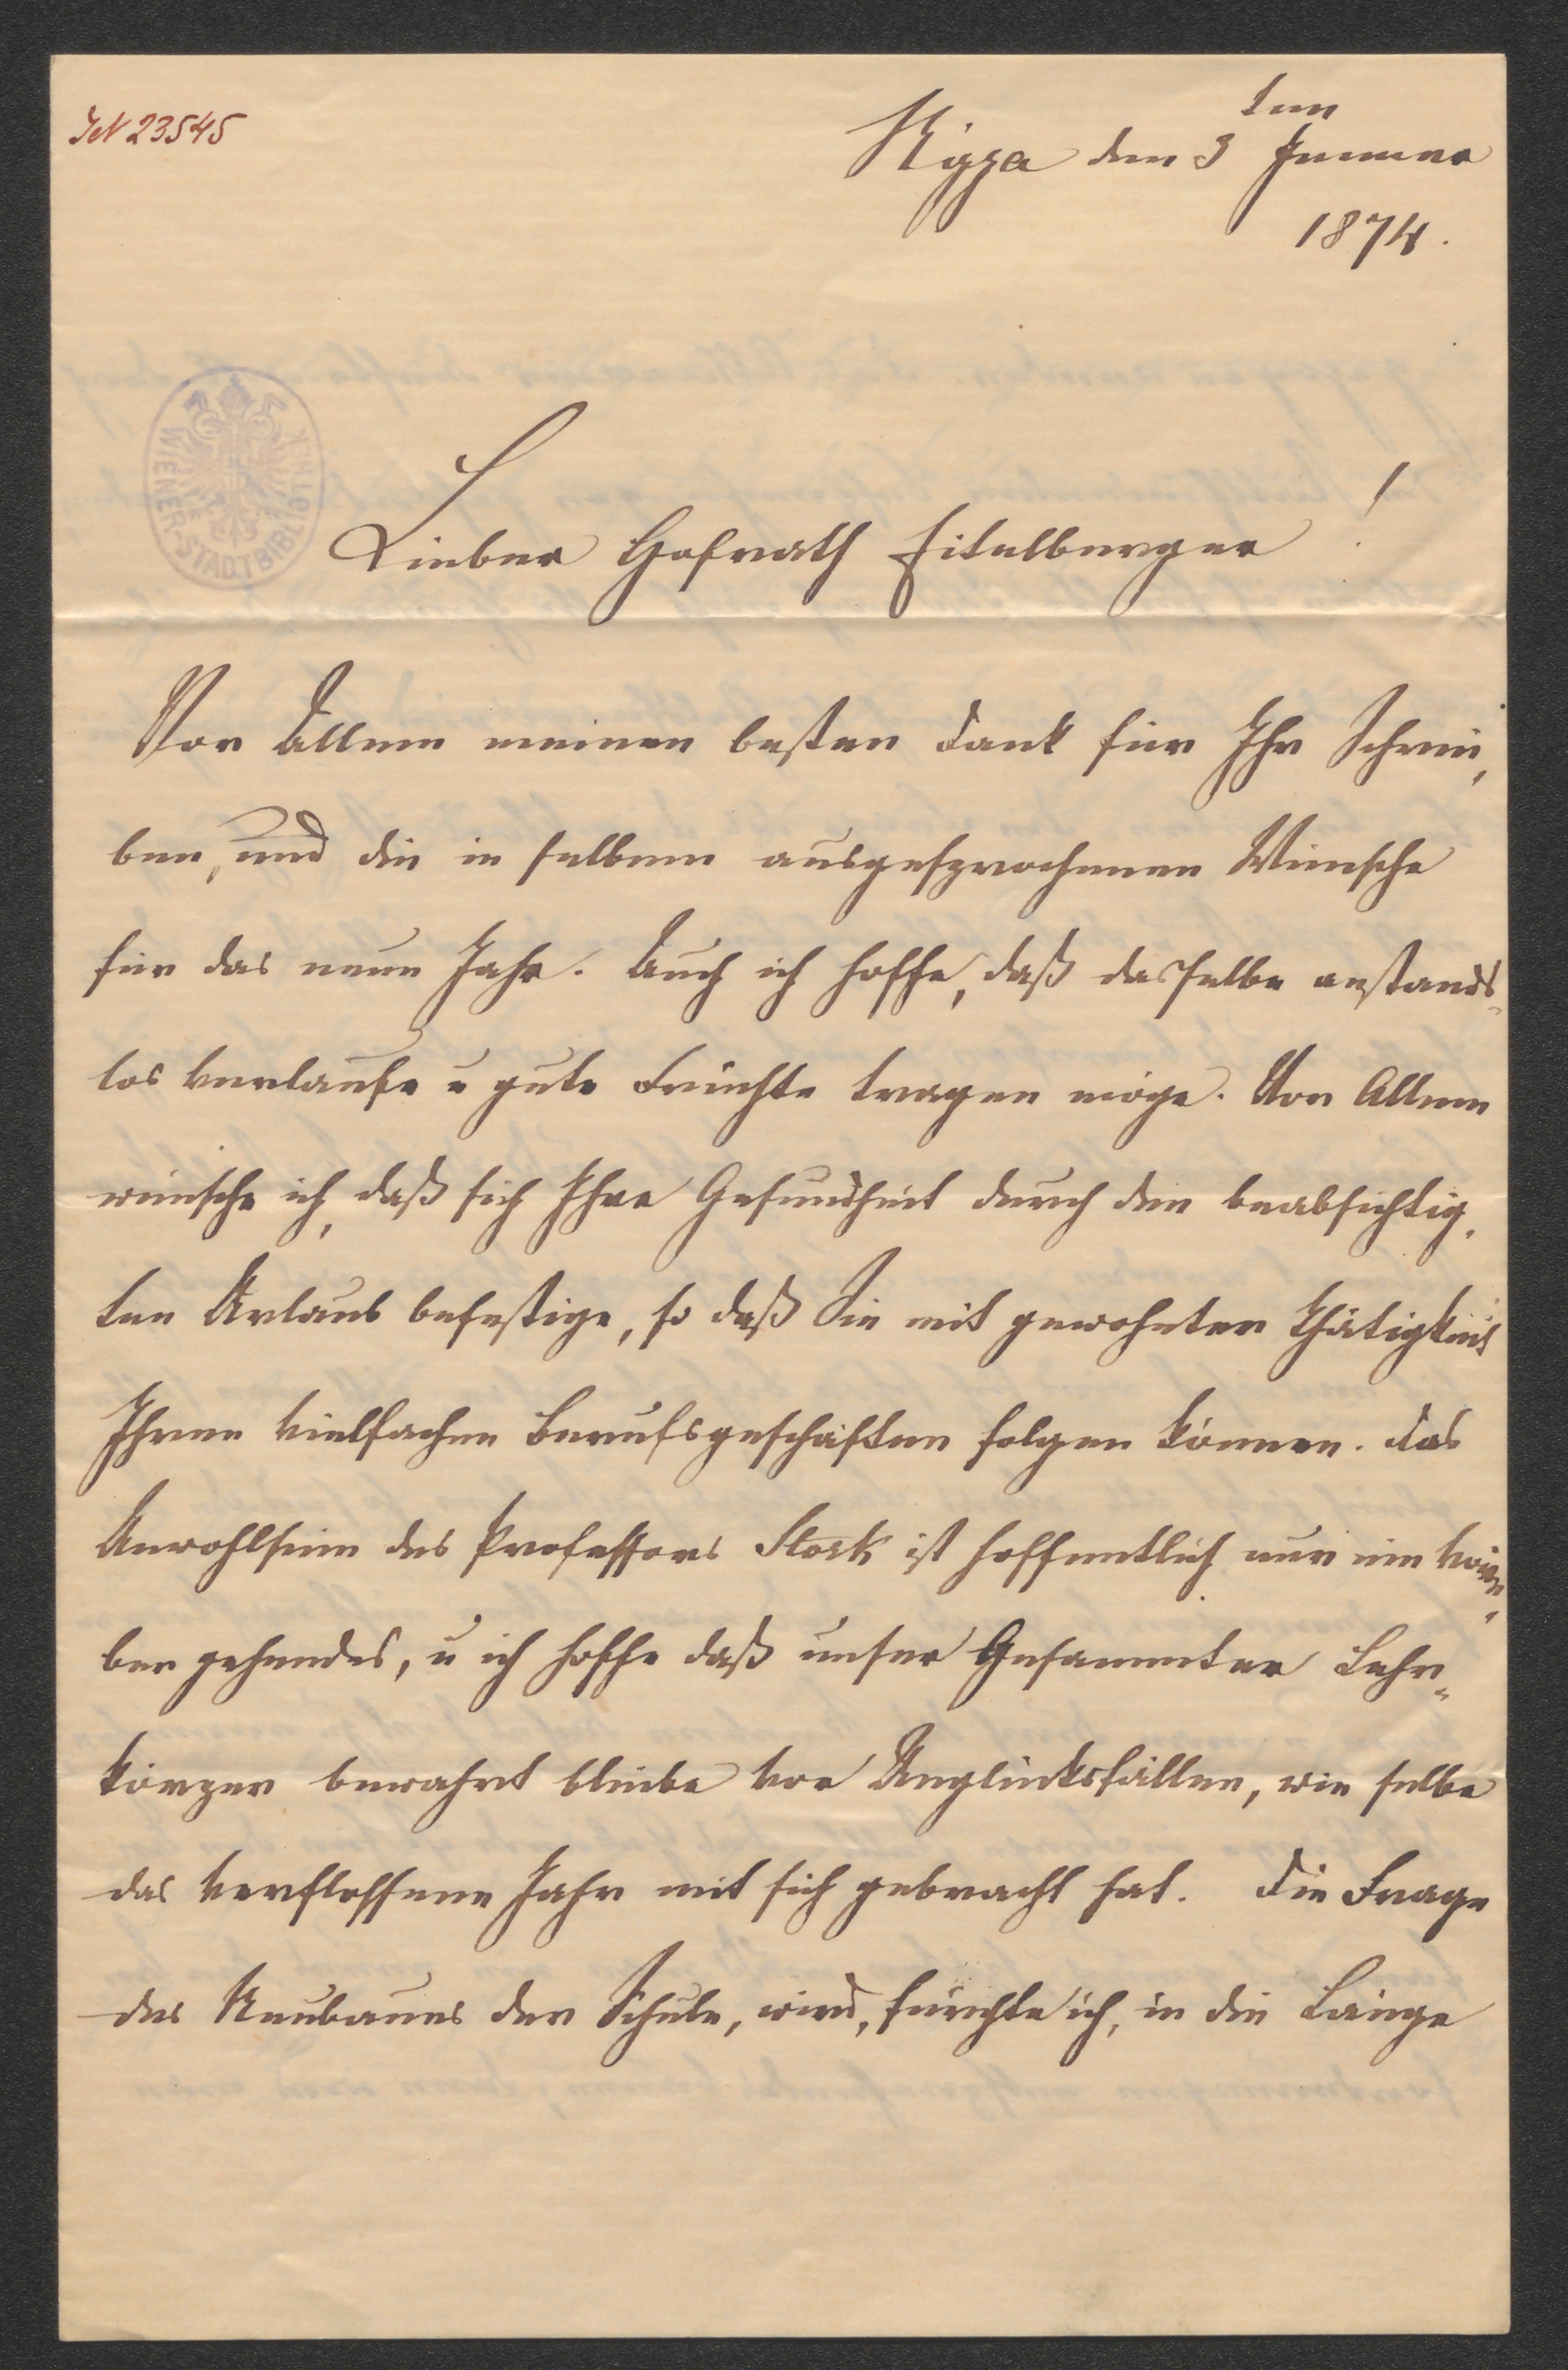 IN 23545
ten
Nizza den 3 Jänner
1874.
WIENER-STADTBIBLIOTHEK
Lieber Hofrath Eitelberger!
Vor Allem meinen besten Dank für Ihr Schrei,
ben, und die in selbem ausgesprochenen Wünsche
für das neue Jahr. Auch ich hoffe, daß dasselbe anstands-
los verlaufe u gute Früchte tragen möge. Vor Allem
wünsche ich, daß sich Ihre Gesundheit durch den beabsichtig,
ten Urlaub befestige, so daß Sie mit gewohnter Thätigkeit
Ihren vielfachen Berufsgeschäften folgen können. Das
Unwohlsein des Professors Stork ist hoffentlich nur ein vorü,
ber gehendes, u ich hoffe daß unser Gesammter Lehr„
körper bewahrt bleibe vor Unglücksfällen, wie selbe
das verflossene Jahr mit sich gebracht hat. Die Frage
des Neubaues der Schule, wird, fürchte ich, in die Länge